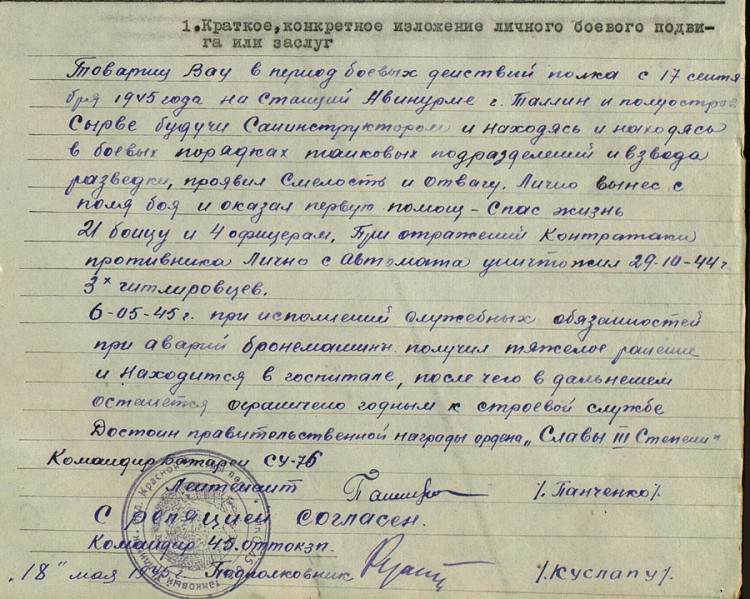 1.Краткое,конкретное изложение личного боевого подви-
га или заслуг
Товарищ Вау в период боевых действий полка с 17 сентя-
бря 1945 года на Станций Авинурме г. Таллин и полуостров
Сырве будучи Санинструктором и находясь и находясь
в боевых порядках танковых подразделений и взвода
разведки, проявил Смелость и отвагу. Лично вынес с
поля боя и оказал первую помощ - Спас жизнь
21 бойцу и 4 офицерам. При отражений Контратаки
противника Лично с Автомата уничтожил 29-10-44г
3х гитлировцев.
6-05-45г. при исполнений служебных обязанностей
при аварий бронемашины получил тяжелое ранение
и находится в госпитале, после чего в дальнешем
останется ограничено годным к строевой службе
Достоин правительственной награды ордена „Славы III Степени"
Командир батареи СУ-76
Лейтенант /.Панченко/.
С согласен.
Командир 45.оттокэп.
„18" мая 1945г. Подполковник /.Куслапу/.